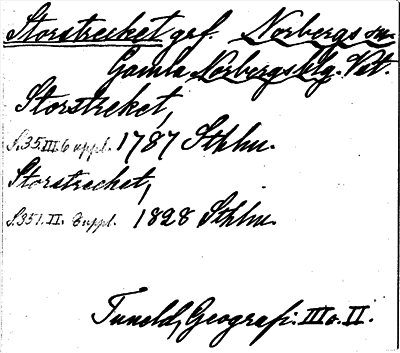 Storstrecket grf. Norbergs sn.
Gamla Norbergs blg. Vst.
Storstreket,
S.35.III.6 uppl. 1787 Sthlm.
Storstrecket,
S.351.II. 2 uppl. 1828 Sthlm.
Tuneld, Geografi. III o. II.